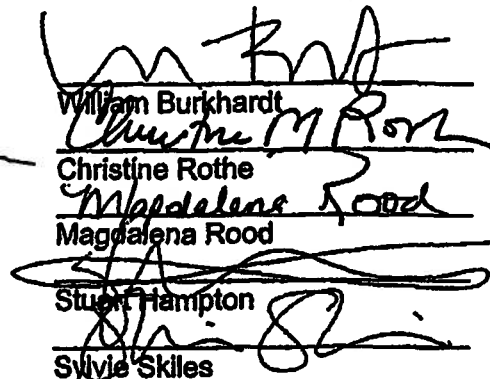 William Burkhardt
Christine M Roth
Christine Rothe
Magdalena Rood
Magdalena Rood
Stuart Hampton
Sylvie Skiles